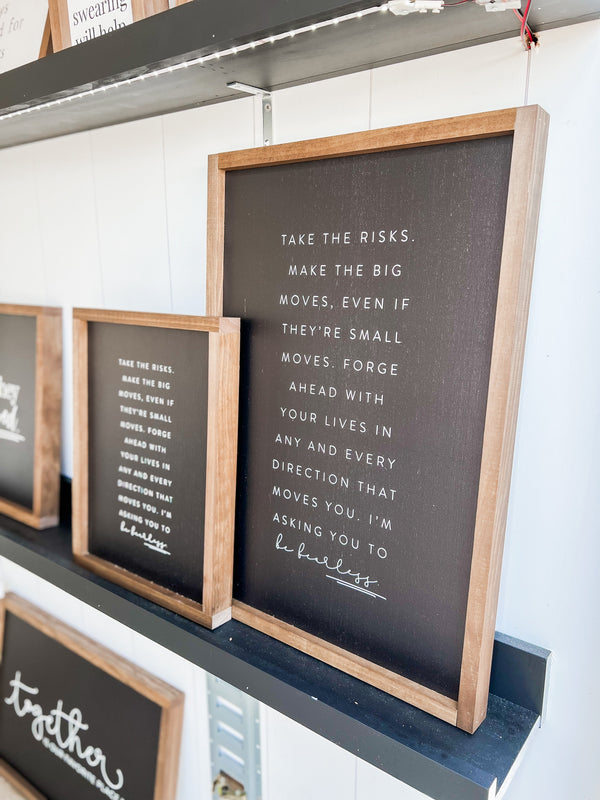 swearing
will help
TAKE THE RISKS.
MAKE THE BIG
MOVES, EVEN IF
THEY'RE SMALL
MOVES. FORGE
AHEAD WITH
YOUR LIVES IN
ANY AND EVERY
DIRECTION THAT
MOVES YOU. I'M
ASKING YOU TO
be fearless.
TAKE THE RISKS.
MAKE THE BIG
MOVES, EVEN IF
THEY'RE SMALL
MOVES. FORGE
AHEAD WITH
YOUR LIVES IN
ANY AND EVERY
DIRECTION THAT
MOVES YOU. I'M
ASKING YOU TO
be fearless.
together
IS OUR FAVORITE PLACE